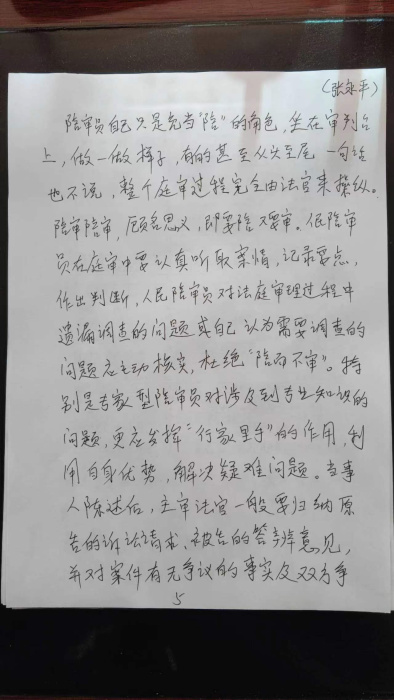 (张永平)
陪审员自己只是充当“陪”的角色,坐在审判台
上,做一做样子,有的甚至从头至尾一句话
也不说,整个庭审过程完全由法官来操纵。
陪审陪审,顾名思义,即要陪又要审。但陪审
员在庭审中要认真听取案情,记录要点,
作出判断,人民陪审员对法庭审理过程中
遗漏调查的问题或自己认为需要调查的
问题应主动核实,杜绝“陪而不审”。特
别是专家型陪审员对涉及到专业知识的
问题,更应发挥“行家里手”的作用,利
用自身优势,解决疑难问题。当事
人陈述后,主审法官一般要归纳原
告的诉讼请求、被告的答辨意见,
并对案件有无争议的事实及双方争
5